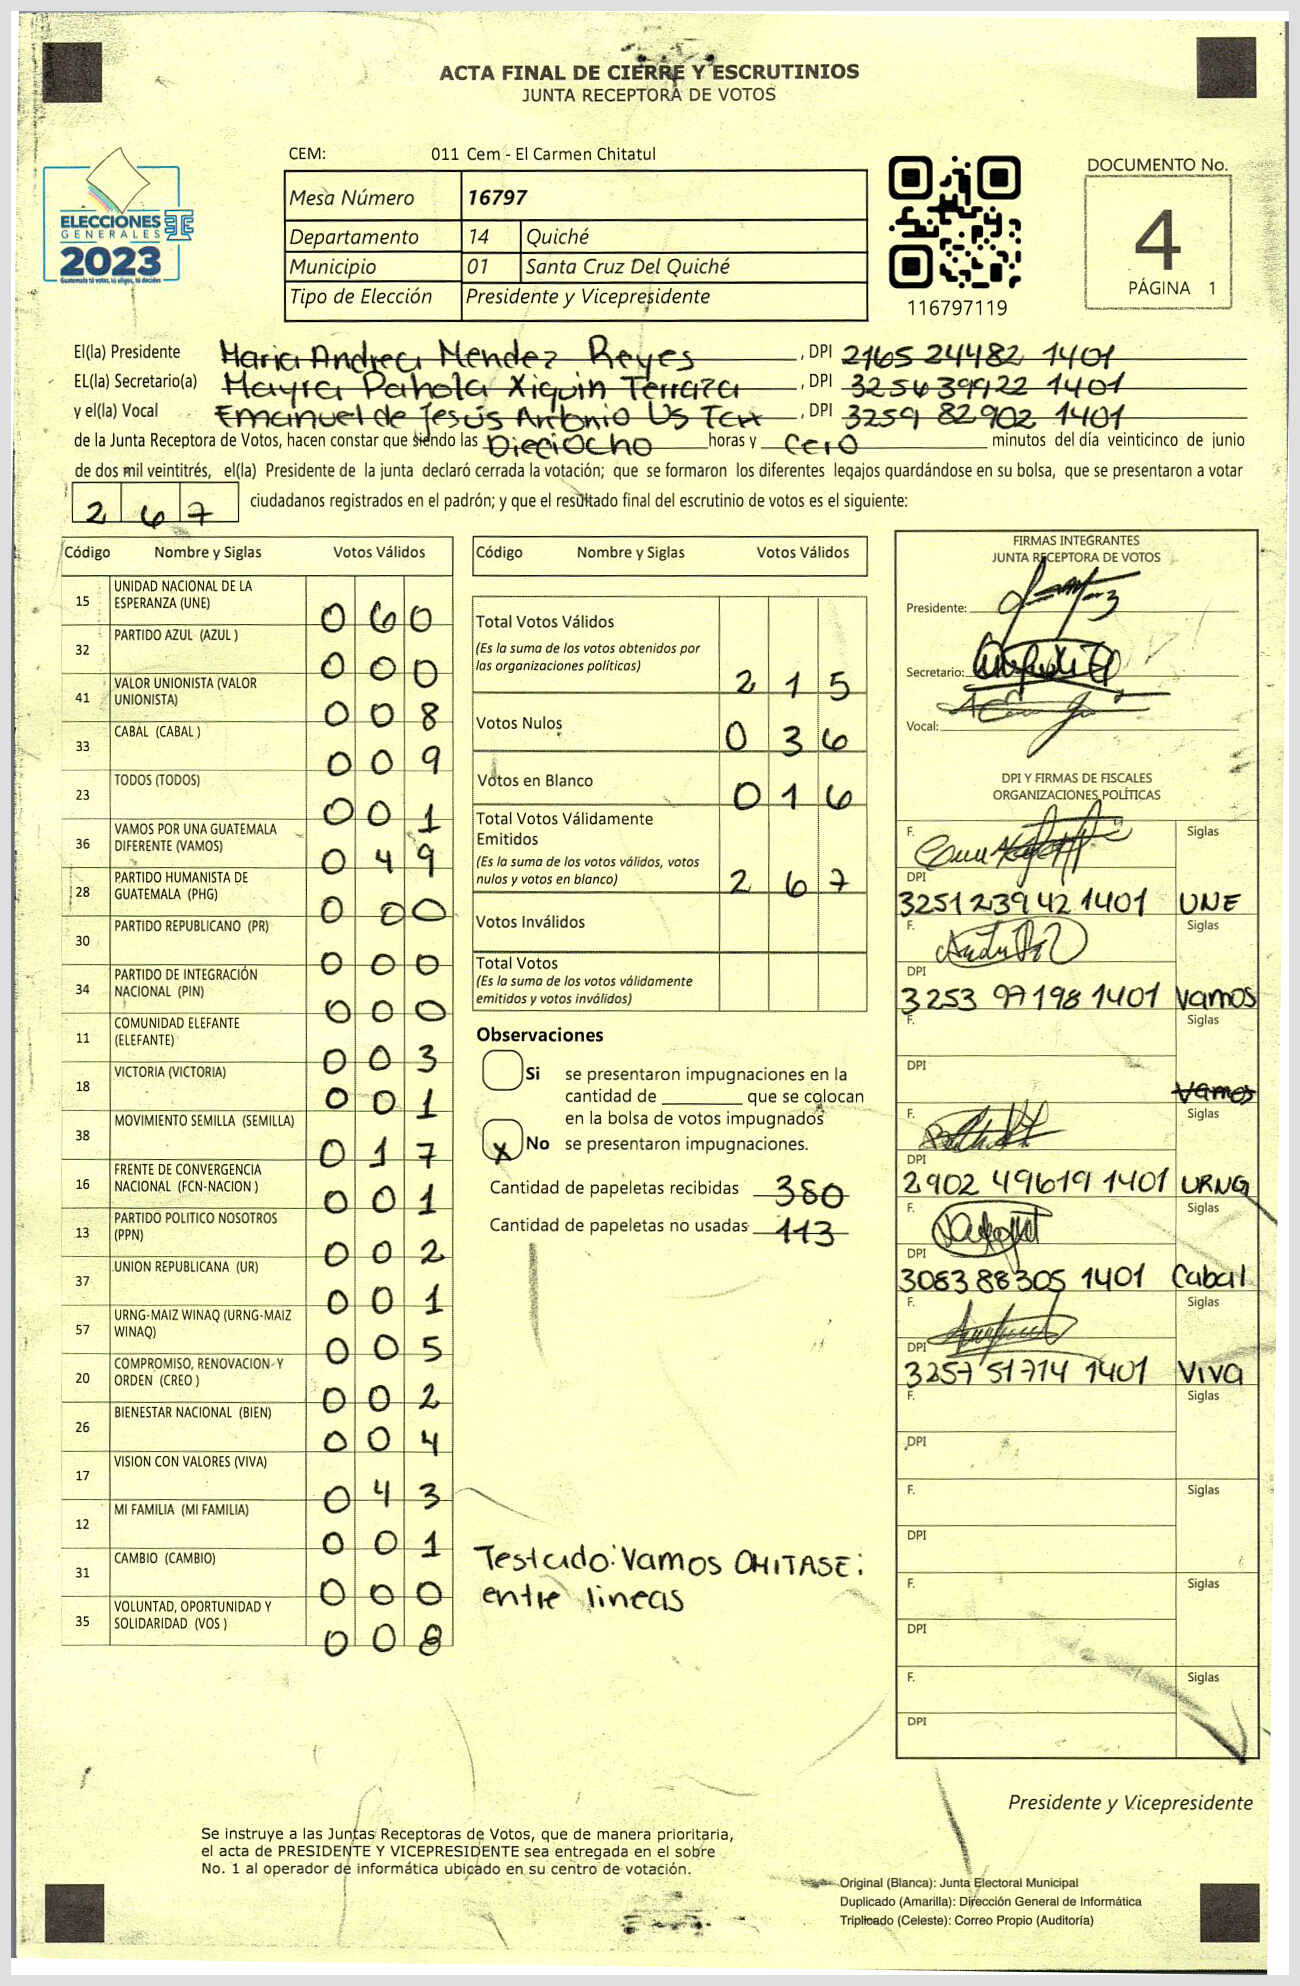 ACTA FINAL DE CIERRE Y ESCRUTINIOS
JUNTA RECEPTORA DE VOTOS
CEM: 011 Cem - El Carmen Chitatul
Mesa Número 16797
Departamento 14 Quiché
Municipio 01 Santa Cruz Del Quiché
Tipo de Elección Presidente y Vicepresidente
ELECCIONES
GENERALES
2023
Guatemala tú votas, tú eliges, tú decides
116797119
DOCUMENTO No.
4
PÁGINA 1
El(la) Presidente Maria Andrea Mendez Reyes , DPI 2165 24482 1401
EL(la) Secretario(a) Mayra Pahola Xiquin Terraza , DPI 3256 39922 1401
y el(la) Vocal Emanuel de Jesús Antonio Us Tax , DPI 3259 82902 1401
de la Junta Receptora de Votos, hacen constar que siendo las Dieciocho horas y cero minutos del día veinticinco de junio
de dos mil veintitrés, el(la) Presidente de la junta declaró cerrada la votación; que se formaron los diferentes legajos quardándose en su bolsa, que se presentaron a votar
267 ciudadanos registrados en el padrón; y que el resultado final del escrutinio de votos es el siguiente:
Código Nombre y Siglas Votos Válidos
15 UNIDAD NACIONAL DE LA ESPERANZA (UNE) 060
32 PARTIDO AZUL (AZUL ) 000
41 VALOR UNIONISTA (VALOR UNIONISTA) 008
33 CABAL (CABAL ) 009
23 TODOS (TODOS) 001
36 VAMOS POR UNA GUATEMALA DIFERENTE (VAMOS) 049
28 PARTIDO HUMANISTA DE GUATEMALA (PHG) 000
30 PARTIDO REPUBLICANO (PR) 000
34 PARTIDO DE INTEGRACIÓN NACIONAL (PIN) 000
11 COMUNIDAD ELEFANTE (ELEFANTE) 003
18 VICTORIA (VICTORIA) 001
38 MOVIMIENTO SEMILLA (SEMILLA) 017
16 FRENTE DE CONVERGENCIA NACIONAL (FCN-NACION ) 001
13 PARTIDO POLITICO NOSOTROS (PPN) 002
37 UNION REPUBLICANA (UR) 001
57 URNG-MAIZ WINAQ (URNG-MAIZ WINAQ) 005
20 COMPROMISO, RENOVACION Y ORDEN (CREO ) 002
26 BIENESTAR NACIONAL (BIEN) 004
17 VISION CON VALORES (VIVA) 043
12 MI FAMILIA (MI FAMILIA) 001
31 CAMBIO (CAMBIO) 000
35 VOLUNTAD, OPORTUNIDAD Y SOLIDARIDAD (VOS ) 008
Código Nombre y Siglas Votos Válidos
Total Votos Válidos 215
(Es la suma de los votos obtenidos por
las organizaciones políticas)
Votos Nulos 036
Votos en Blanco 016
Total Votos Válidamente
Emitidos
(Es la suma de los votos válidos, votos
nulos y votos en blanco) 267
Votos Inválidos
Total Votos
(Es la suma de los votos válidamente
emitidos y votos inválidos)
Observaciones
Si se presentaron impugnaciones en la
cantidad de que se colocan
en la bolsa de votos impugnados
X No se presentaron impugnaciones.
Cantidad de papeletas recibidas 380
Cantidad de papeletas no usadas 113
Testado: Vamos OMITASE:
entre lineas
FIRMAS INTEGRANTES
JUNTA RECEPTORA DE VOTOS
Presidente:
Secretario:
Vocal:
DPI Y FIRMAS DE FISCALES
ORGANIZACIONES POLÍTICAS
F. Siglas
DPI
3251 23942 1401 UNE
F. Siglas
DPI
3253 97198 1401 Vamos
F. Siglas
DPI
Vamos
F. Siglas
DPI
2902 49619 1401 URNG
F. Siglas
DPI
3083 88305 1401 Cabal
F. Siglas
DPI
3257 51714 1401 VIVA
F. Siglas
DPI
F. Siglas
DPI
F. Siglas
DPI
F. Siglas
DPI
Presidente y Vicepresidente
Se instruye a las Juntas Receptoras de Votos, que de manera prioritaria,
el acta de PRESIDENTE Y VICEPRESIDENTE sea entregada en el sobre
No. 1 al operador de informática ubicado en su centro de votación.
Original (Blanca): Junta Electoral Municipal
Duplicado (Amarilla): Dirección General de Informática
Triplicado (Celeste): Correo Propio (Auditoría)